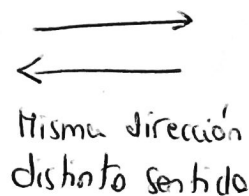 Misma dirección
distinto sentido